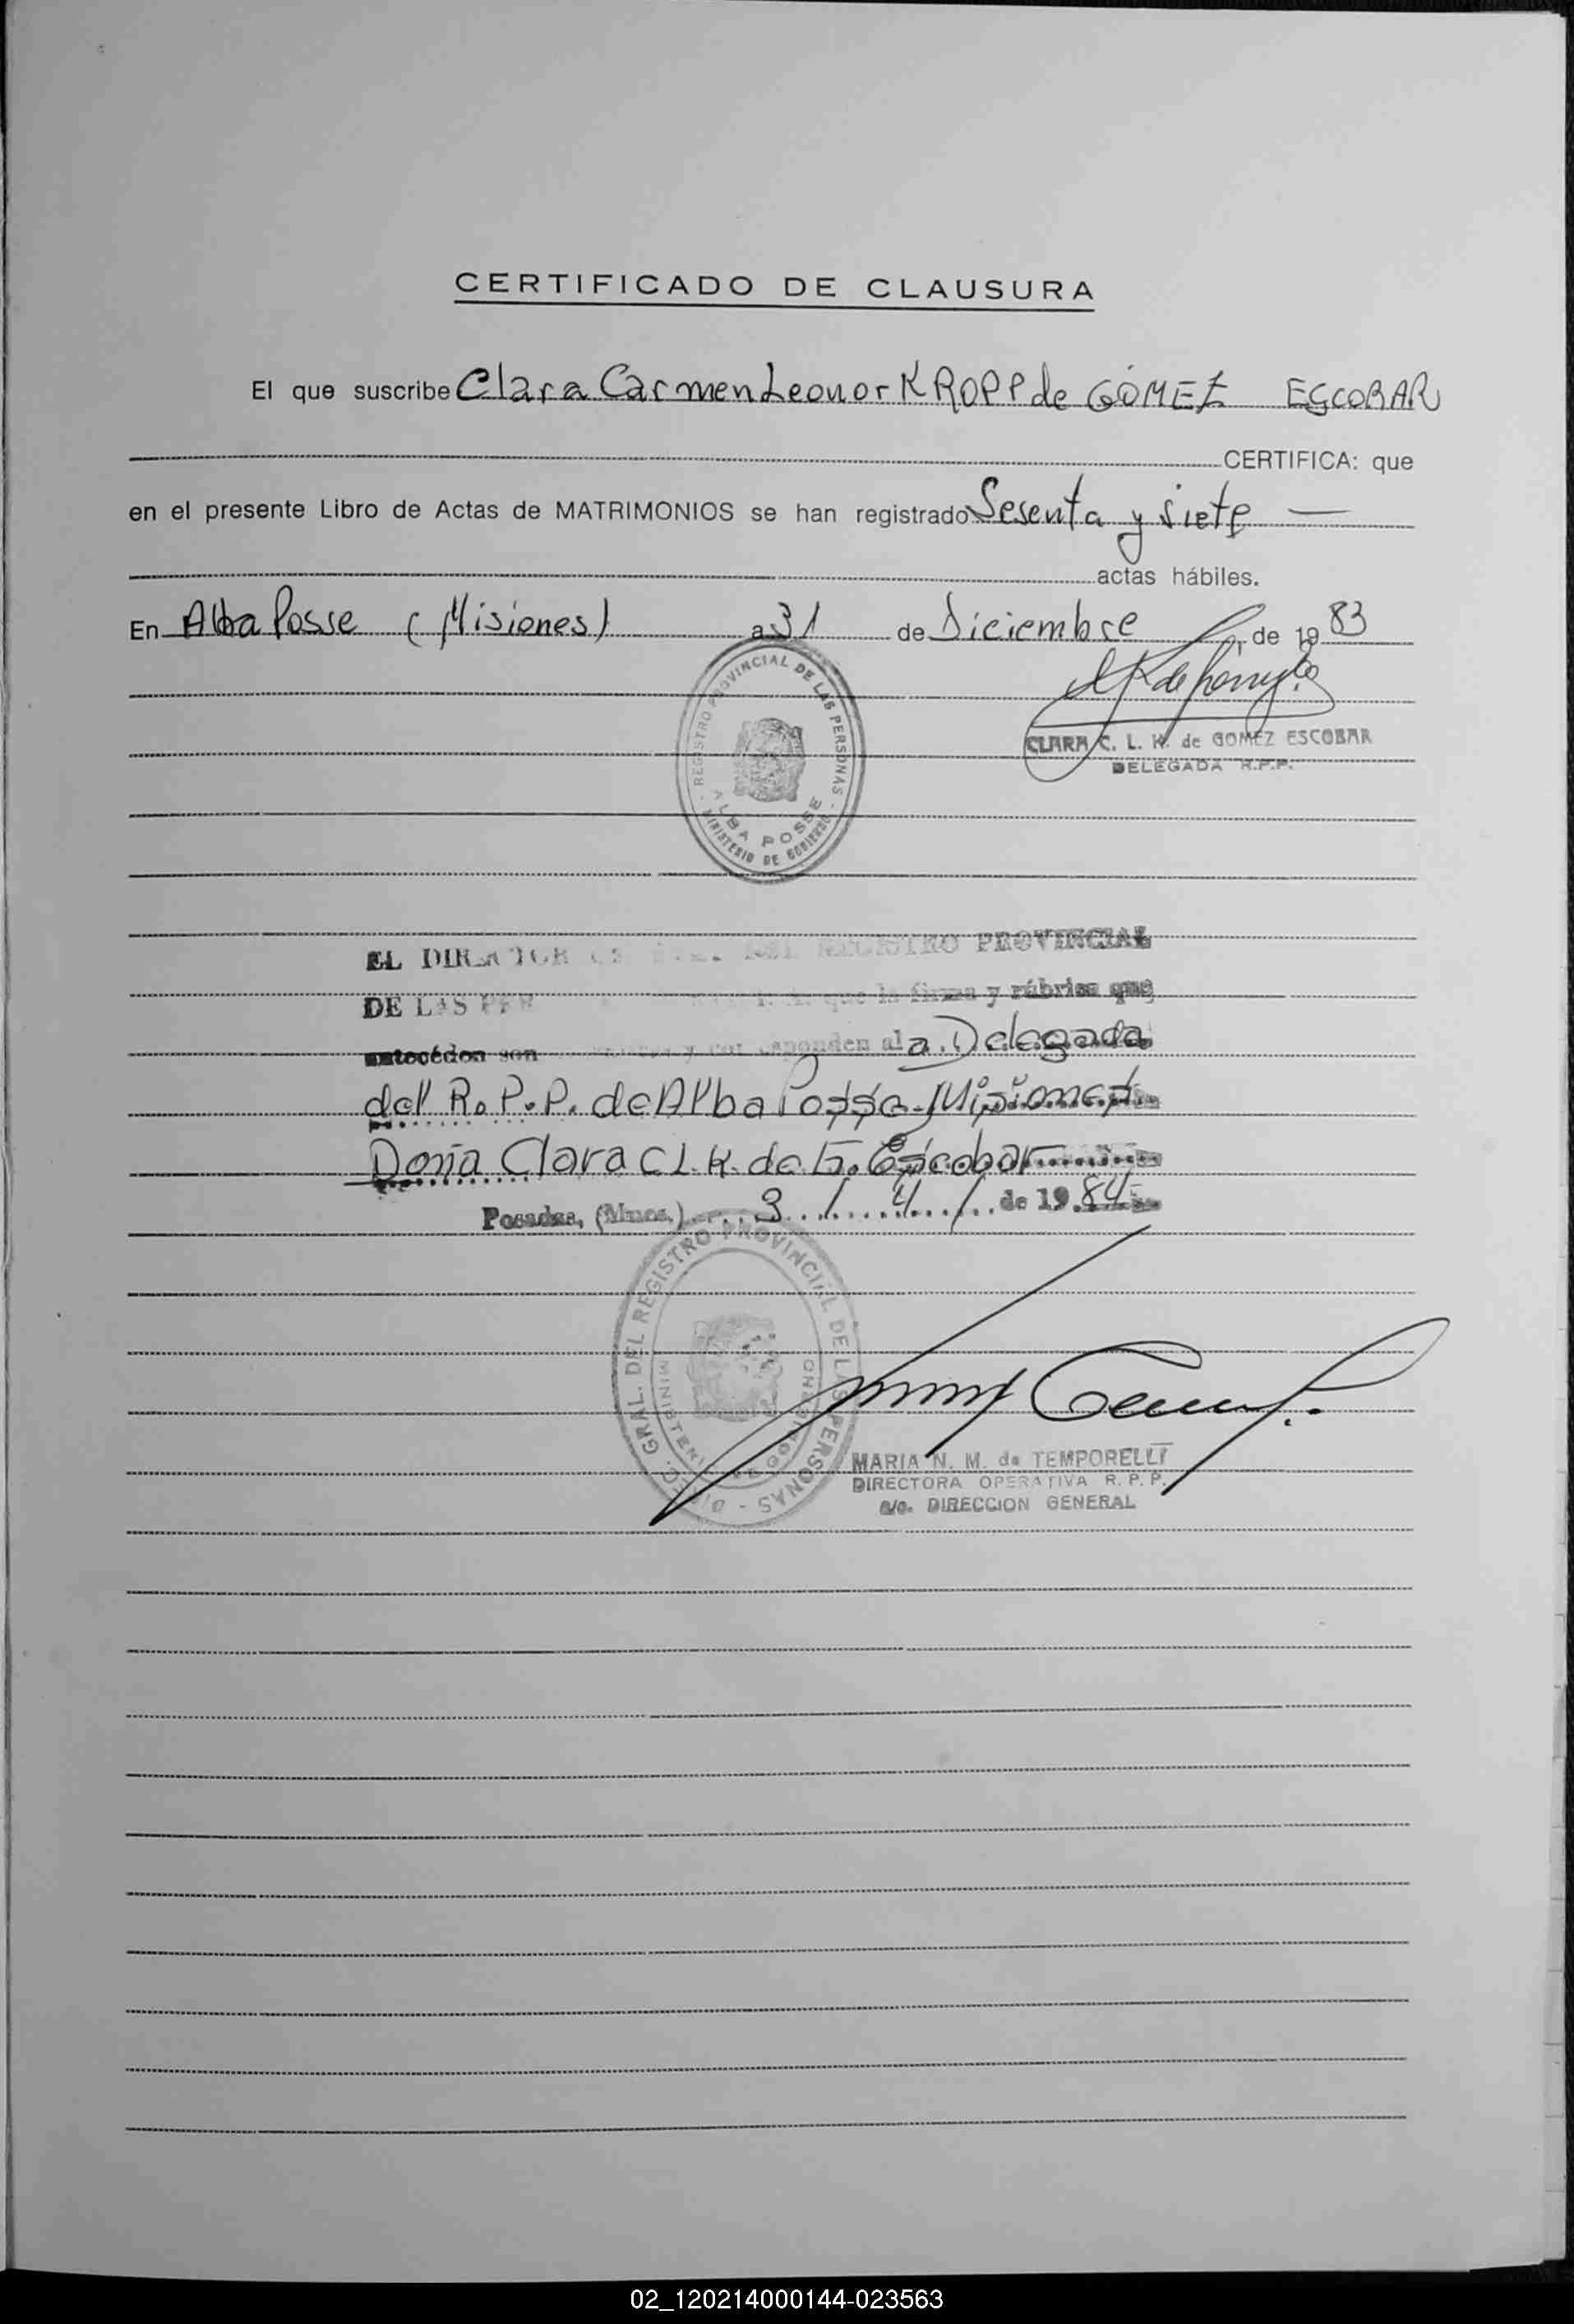 CERTIFICADO DE CLAUSURA
El que suscribe Clara Carmen Leonor KROPP de GÓMEZ ESCOBAR
CERTIFICA: que
en el presente Libro de Actas de MATRIMONIOS se han registrado Sesenta y siete —
actas hábiles.
En Alba Posse (Misiones) a 31 de Diciembre de 1983
REGISTRO PROVINCIAL DE LAS PERSONAS
ALBA POSSE
MINISTERIO DE GOBIERNO
CLARA C. L. K. de GOMEZ ESCOBAR
DELEGADA R.P.P.
EL DIRECTOR DEL REGISTRO PROVINCIAL
DE LAS PER que la firma y rúbrica que
anteceden son y corresponden al a Delegada
del R.P.P. de Alba Posse - Misiones
Doña Clara C L. K. de G. Escobar
Posadas, (Mnes.) 3 / 4 / de 1984
DIREC. GRAL. DEL REGISTRO PROVINCIAL DE LAS PERSONAS
MARIA N. M. de TEMPORELLI
DIRECTORA OPERATIVA R. P. P.
a/c. DIRECCION GENERAL
02_120214000144-023563